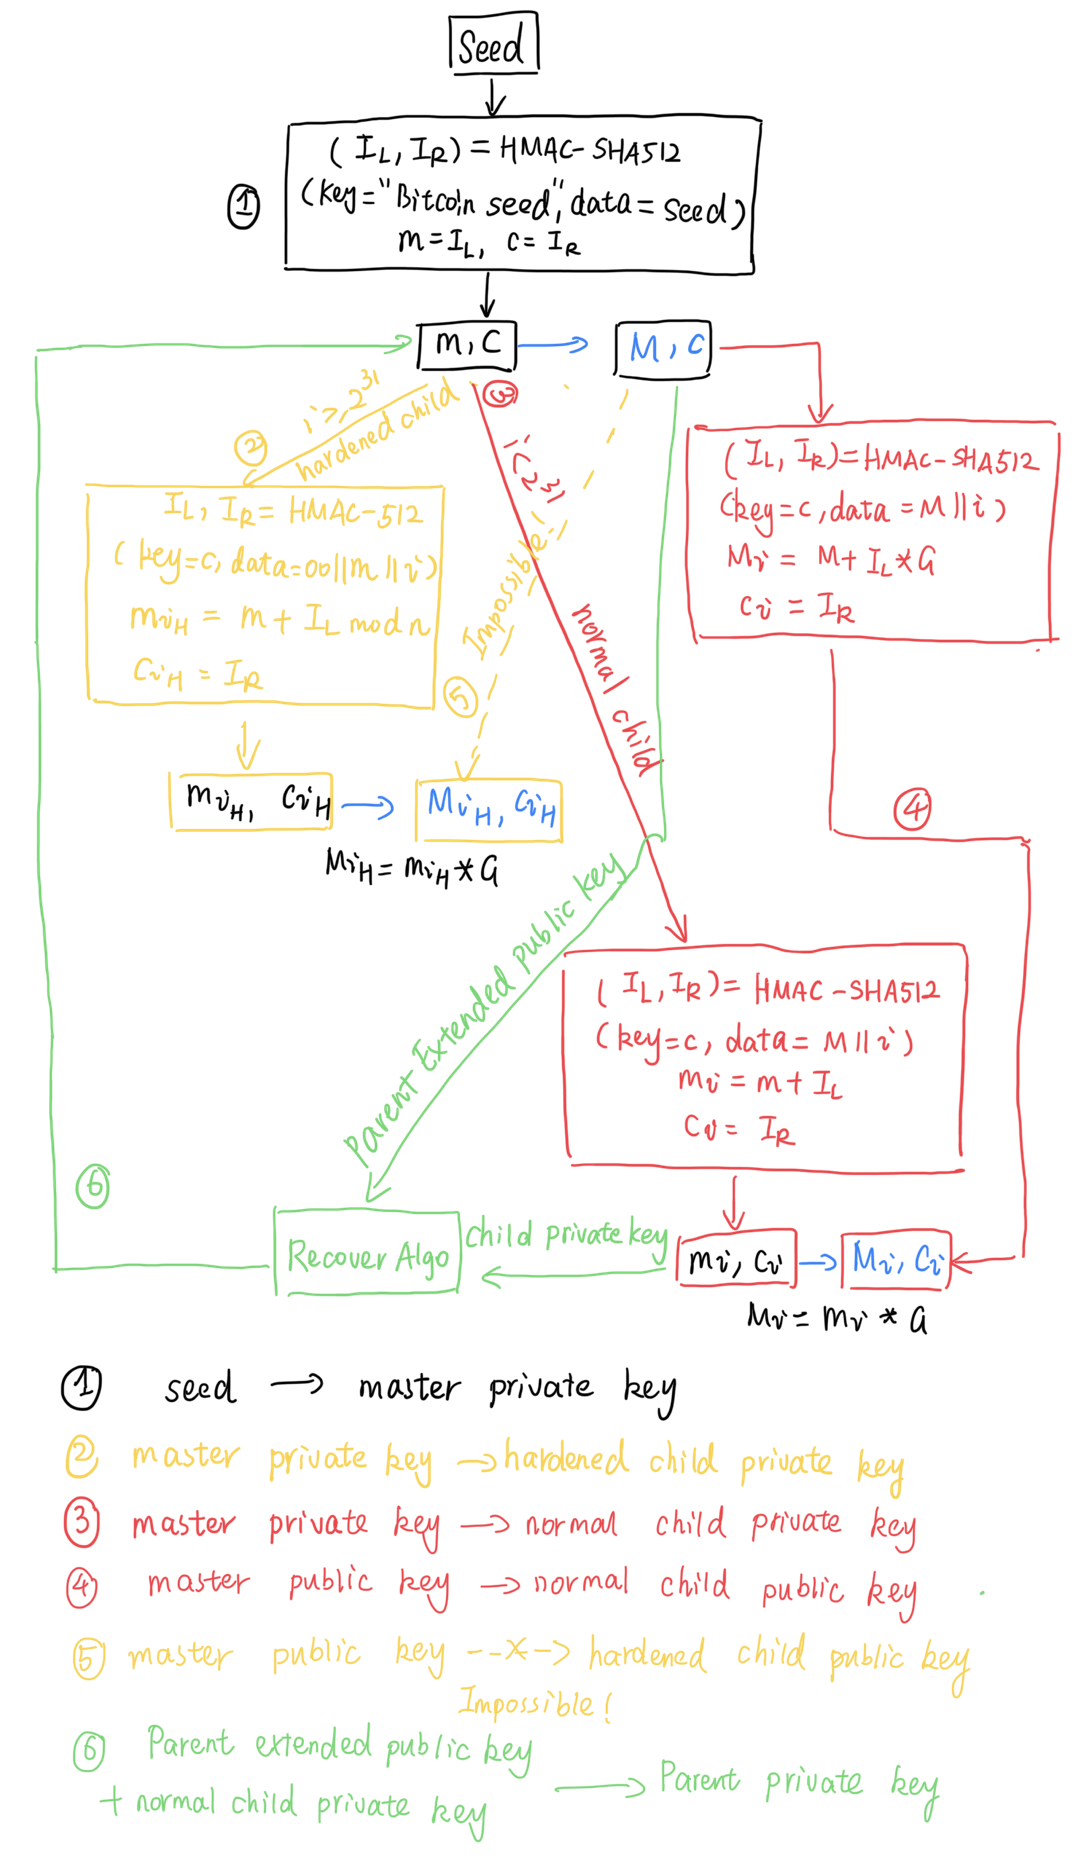 Seed
(IL, IR) = HMAC-SHA512
(key="Bitcoin seed", data = seed)
m=IL, c= IR
①
m, c
M, c
③
i≥2^31
hardened child
②
i<2^31
normal child
Impossible!
⑤
(IL, IR)=HMAC-SHA512
(key=c, data = M || i)
Mi = M+ IL*G
ci = IR
IL, IR= HMAC-512
(key=c, data=00||m||i)
miH = m + IL mod n
CiH = IR
miH, CiH
MiH, CiH
MiH = miH * G
④
Parent Extended public key
(IL, IR)= HMAC-SHA512
(key=c, data= M || i)
mi = m + IL
ci = IR
⑥
Recover Algo
child private key
mi, ci
Mi, Ci
Mi = mi * G
① seed → master private key
② master private key → hardened child private key
③ master private key → normal child private key
④ master public key → normal child public key
⑤ master public key --X-> hardened child public key
Impossible!
⑥ Parent extended public key
+ normal child private key → Parent private key